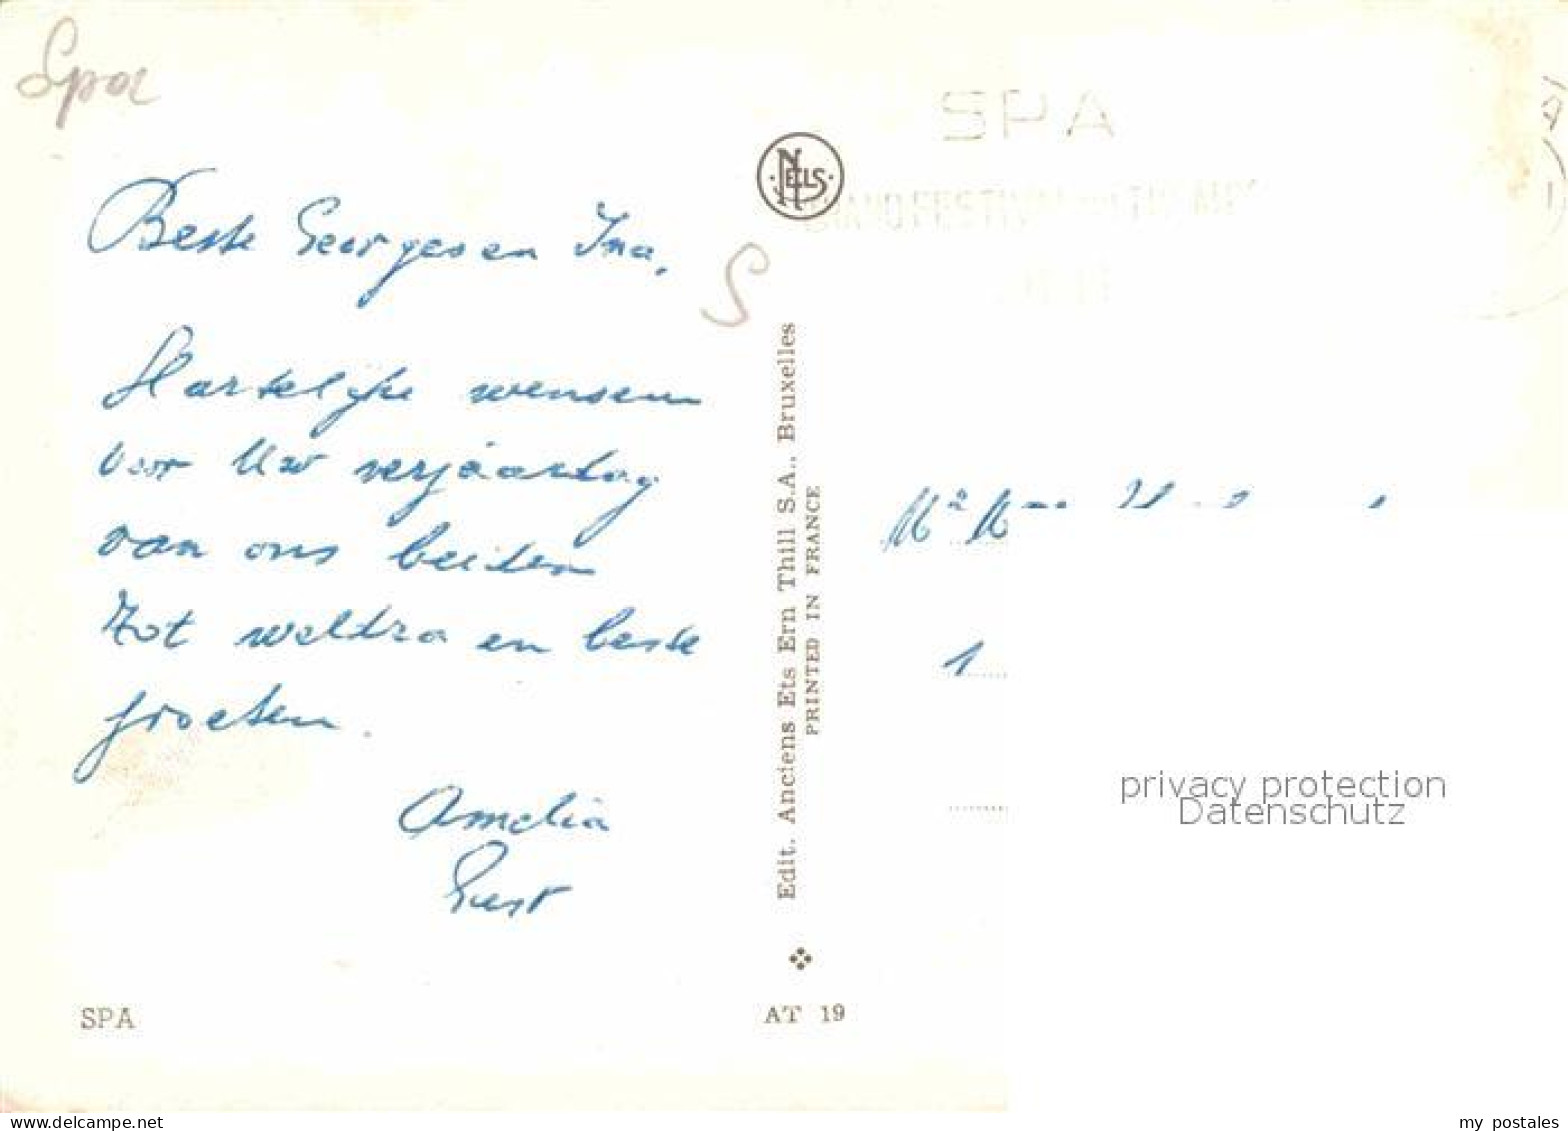 Spa
Beste Georges en Ina,
Hartelijke wensen
voor Uw verjaardag
van ons beiden
Tot weldra en beste
groeten.
Amelia
Gust
SPA
NELS
S
Edit. Anciens Ets Ern Thill S.A., Bruxelles
PRINTED IN FRANCE
AT 19
SPA
Mr Mme
1
privacy protection
Datenschutz
www.delcampe.net
my_postales